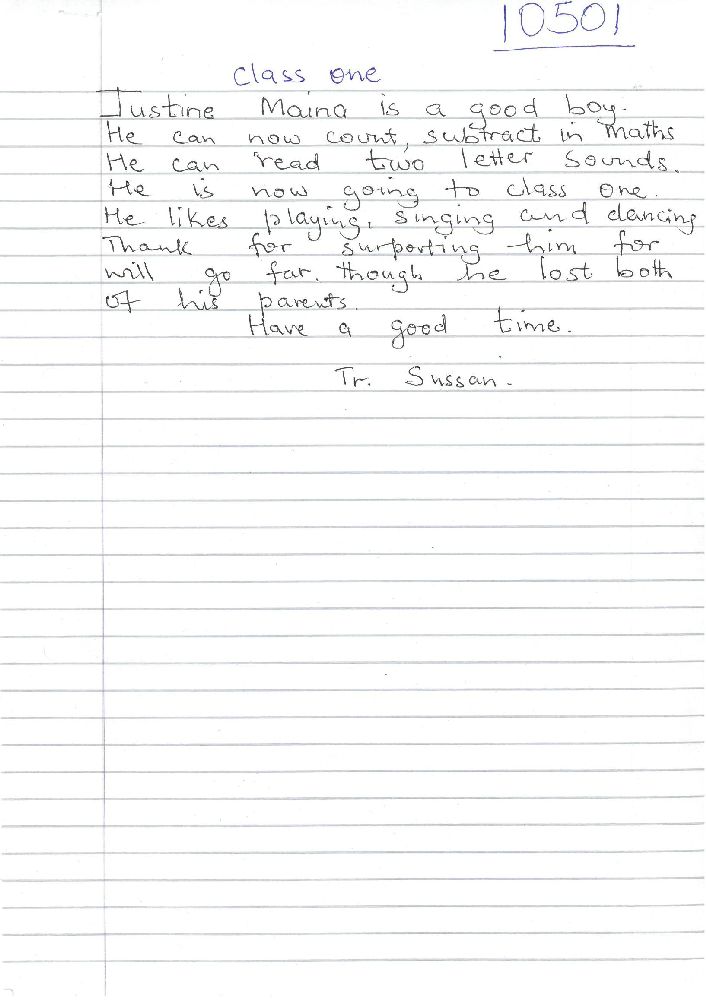 10501
Class one
Justine Maina is a good boy.
He can now count, subtract in maths
He can read two letter sounds.
He is now going to class one.
He likes playing, singing and dancing
Thank for surporting him for
will go far. though he lost both
of his parents.
Have a good time.
Tr. Sussan.